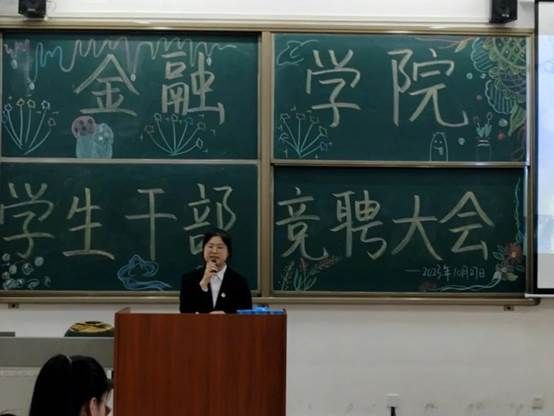 金融学院
学生干部竞聘大会
——2023年10月27日